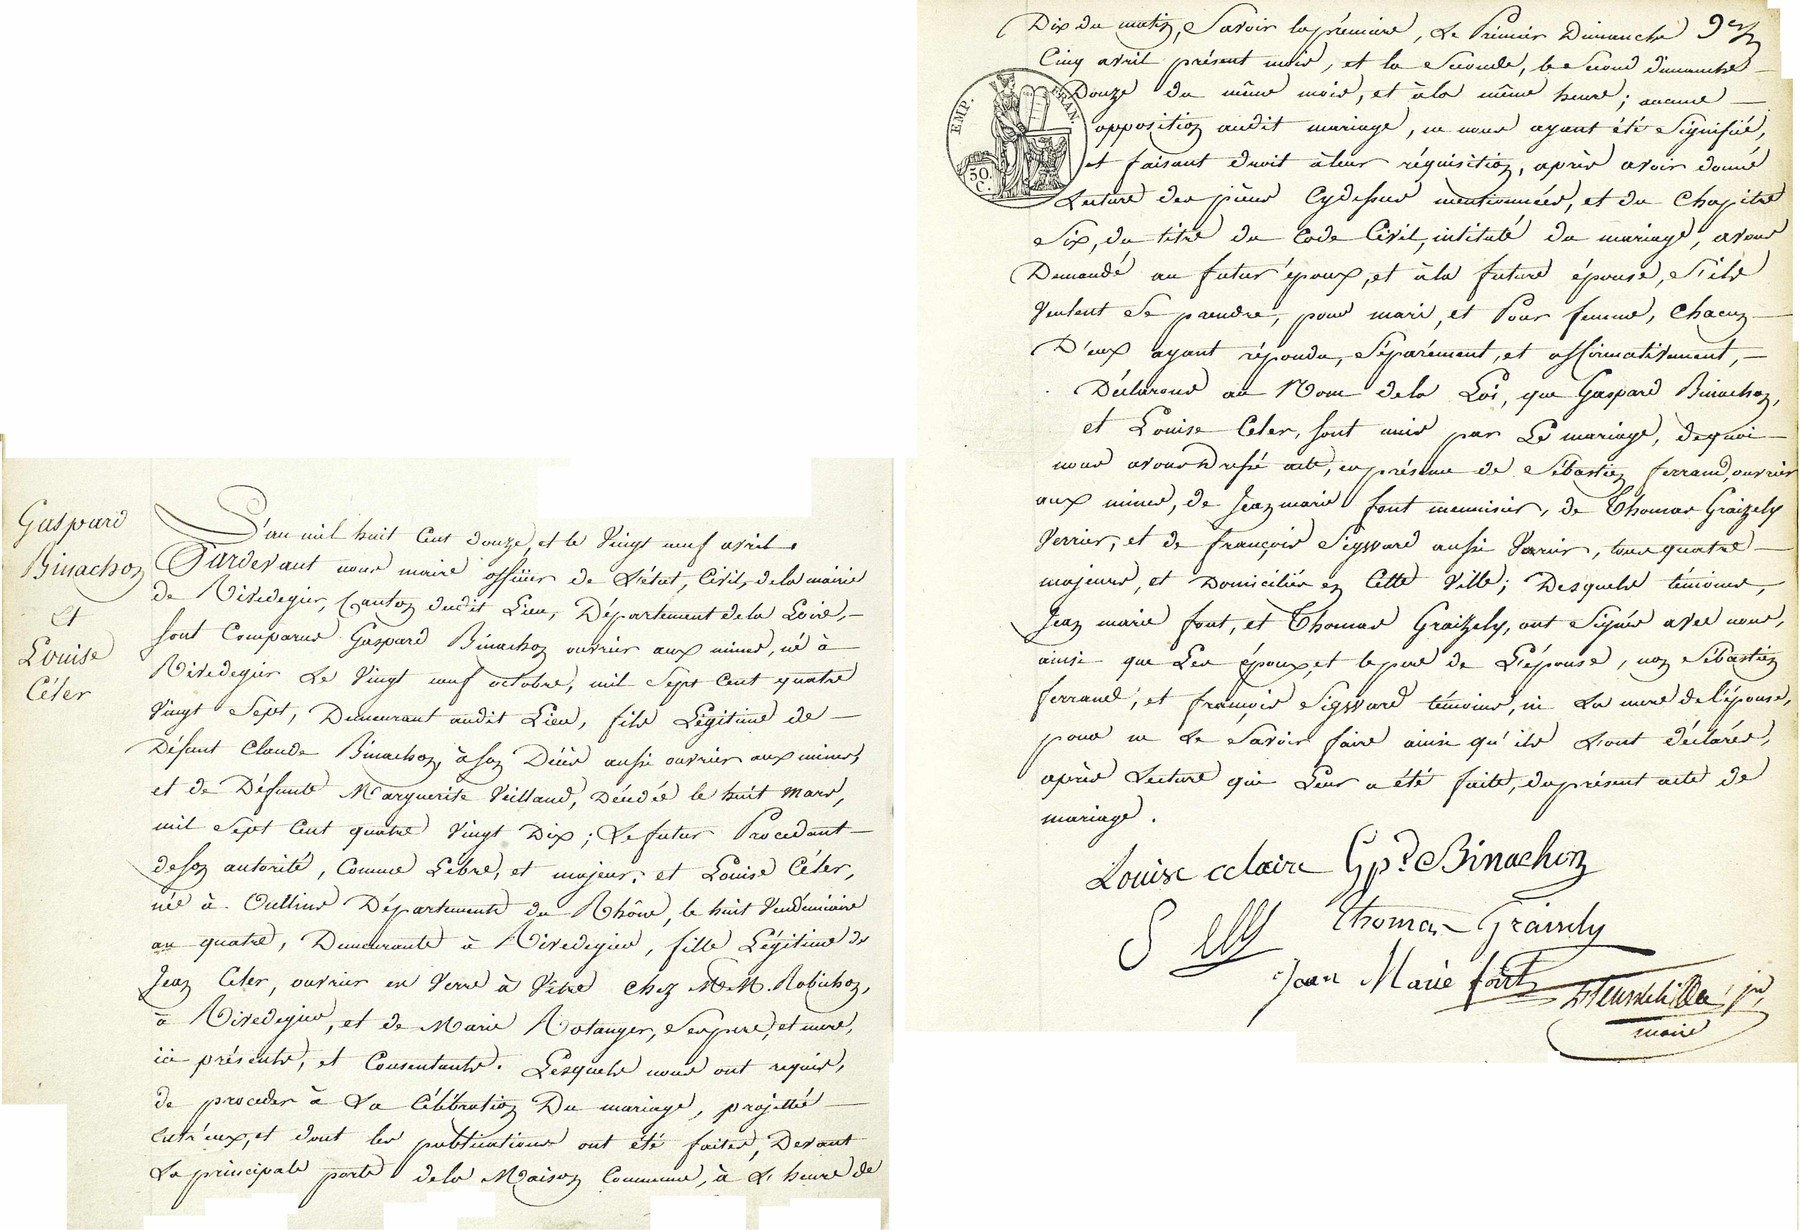 Gaspard
Binachon
et
Louise
Céler
L'an mil huit Cent douze, et le Vingt neuf avril.
Pardevant nous maire officier de L'état, Civil, de la mairie
de Rivedegier, Canton dudit Lieu, Département de la Loire,
sont Comparus Gaspard Binachon ouvrier aux mines, né à
Rivedegier Le Vingt neuf octobre, mil Sept Cent quatre
Vingt Sept, Demeurant audit Lieu, fils Légitime de
Défunt Claude Binachon, à son Décès aussi ouvrier aux mines,
et de Défunte Marguerite Veilland, Décédée le huit Mars,
mil Sept Cent quatre Vingt Dix; Le futur Procedant
de son autorité, Comme Libre, et majeur; et Louise Céler,
née à Oullins Départemente du Rhône, le huit Vendémiaire
an quatre, Demeurante à Rivedegier, fille Légitime de
Jean Céler, ouvrier en Verre à Vitre Chez M.M. Robichon,
à Rivedegier, et de Marie Rotanger, Ses pere, et mere,
ici présents, et Consentants. Lesquels nous ont requis,
de proceder à La Célébration Du mariage, projetté
entr'eux, et dont les publications ont été faites, Devant
La principale porte de la Maison Commune, à L'heure de
9er
Dix du matin, Savoir la prémiere, Le Prémier Dimanche
Cinq avril présent mois, et la Seconde, le Second dimanche
Douze du même mois, et à la même heure; aucune
opposition audit mariage, ne nous ayant été Signifié,
et faisant droit à leur réquisition, après avoir donné
Lecture des pièces Cydessus mentionnées, et du Chapitre
Six, du titre du Code Civil, intitulé du mariage, avons
Demandé au futur époux, et à la future épouse, S'ils
Veulent Se prendre, pour mari, et Pour femme, Chacun
D'eux ayant répondu, Séparément, et affirmativement,
Déclarons au Nom de la Loi, que Gaspard Binachon,
et Louise Céler, sont unis par Le mariage, de quoi
nous avons Dressé acte, en présence de Sébastien ferrand, ouvrier
aux mines, de Jean marie font menuisier, de Thomas Graizely
Verrier, et de françois Sigward aussi Verrier, tous quatre
majeurs, et Domiciliés en Cette Ville; Desquels témoins,
Jean marie font, et Thomas Graizely, ont Signés avec nous,
ainsi que Les époux, et le pere de L'épouse, non Sébastien
ferrand, et françois Sigward témoins, ni La mere de l'épouse,
pour ne Le Savoir faire ainsi qu'ils L'ont déclarés,
après Lecture qui Leur a été faite, du présent acte de
mariage.
Louise celaire Gpd. Binachon
Thomas Graisely
Jean Marie font
maire
EMP. FRAN.
50. C.